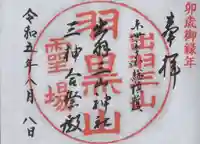 卯歳御縁年
奉拝
出羽三山
羽黒山
出羽三山神社
三神合祭殿
霊場
令和五年八月八日